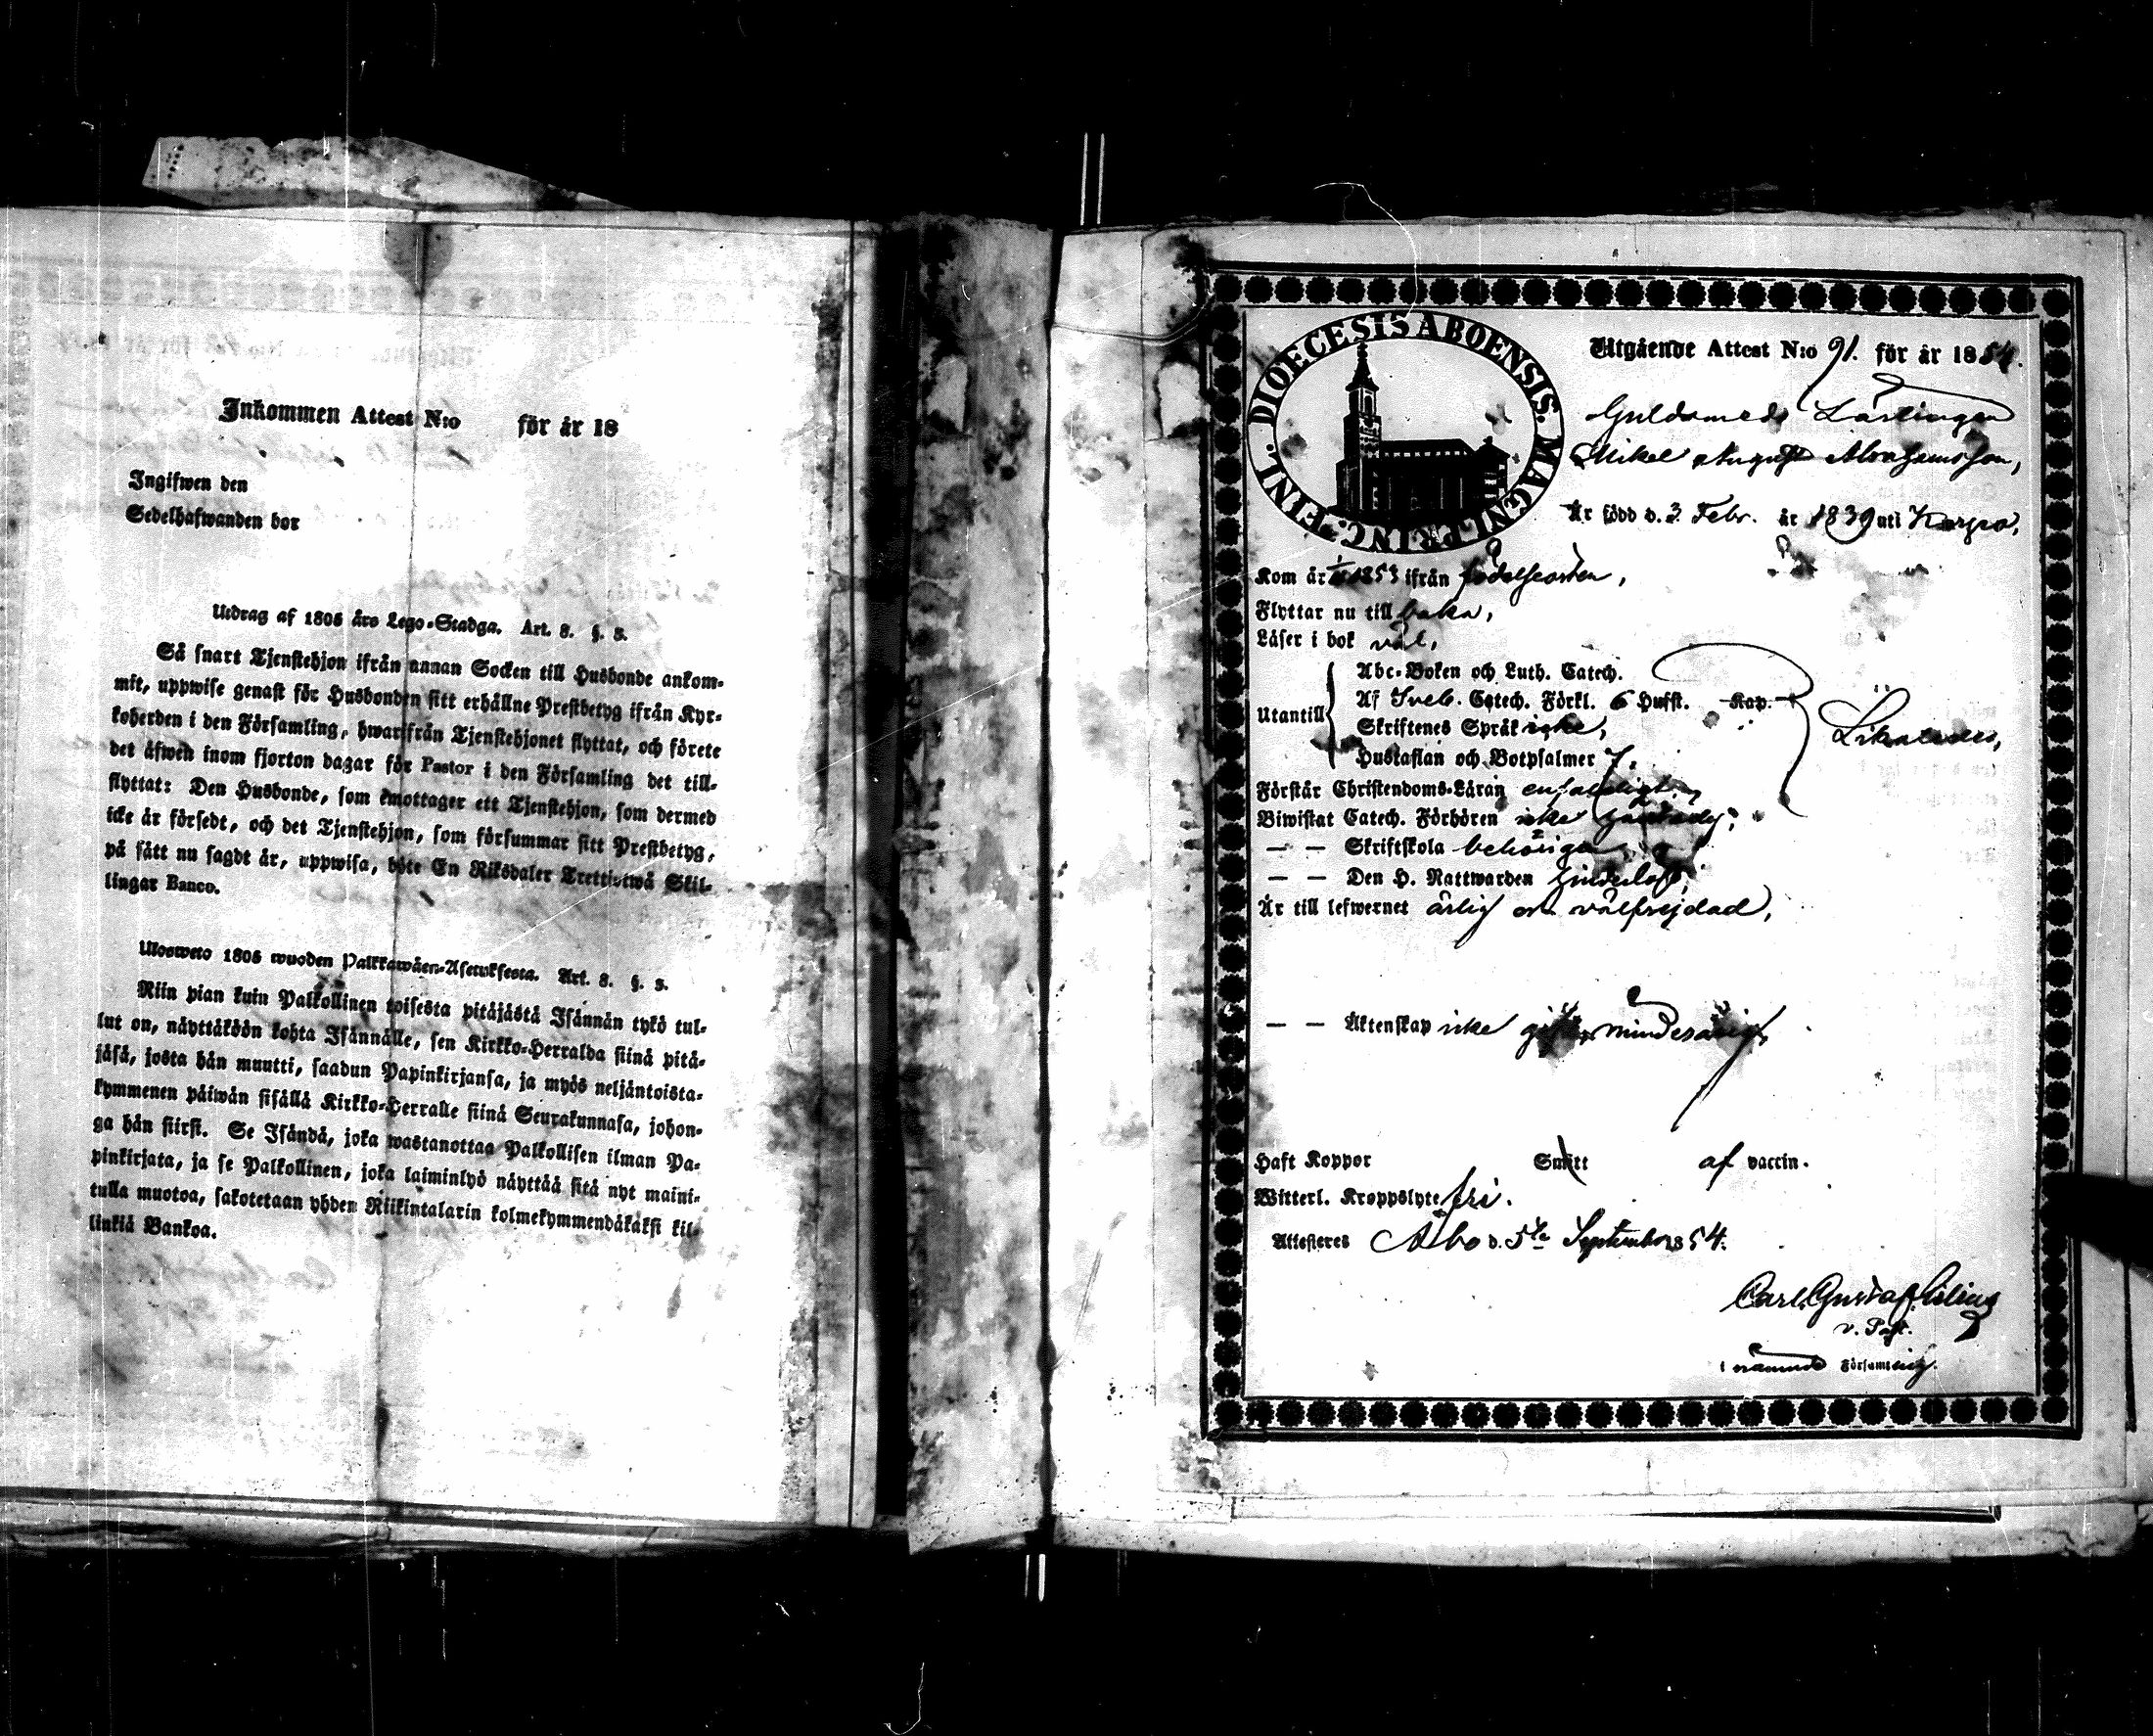 Inkommen Attest N:o för år 18
Ingifwen den
Sedelhafwanden bor
Utdrag af 1805 års Lego-Stadga. Art. 8. §. 3.
Så snart Tjenstehjon ifrån annan Socken till Husbonde ankom-
mit, uppwise genast för Husbonden sitt erhållne Prestbetyg ifrån Kyr-
koherden i den Församling, hwarifrån Tjenstehjonet flyttat, och förete
det äfwen inom fjorton dagar för Pastor i den Församling det till-
flyttat: Den Husbonde, som emottager ett Tjenstehjon, som dermed
icke är försedt, och det Tjenstehjon, som försummar sitt Prestbetyg,
på sätt nu sagdt är, uppwisa, böte En Riksdaler Trettiotwå Skil-
lingar Banco.
Ulosweto 1805 wuoden Palkkawäen-Asetuksesta. Art. 8. §. 3.
Niin pian kuin Palkollinen toisesta pitäjästä Isännän tykö tul-
lut on, näyttäköön kohta Isännälle, sen Kirkko-Herralda siinä pitä-
jäsä, josta hän muutti, saadun Papinkirjansa, ja myös neljäntoista-
kymmenen päiwän sisällä Kirkko-Herralle siinä Seurakunnasa, johon-
ga hän siirsi. Se Isändä, joka wastanottaa Palkollisen ilman Pa-
pinkirjata, ja se Palkollinen, joka laiminlyö näyttää sitä nyt maini-
tulla muotoa, sakotetaan yhden Riikintalarin kolmekymmendäkaksi kil-
linkiä Bankoa.
DIOECESIS ABOENSIS. MAGNI PRINC. FINL.
Utgående Attest N:o 91. för år 1854.
Guldsmeds Lärlingen
Mikel August Abrahamsson,
Är född d. 3 Febr. år 1839 uti Korpo,
Kom år 1853 ifrån födelseorten,
Flyttar nu till baka,
Läser i bok väl,
Utantill
Abc-Boken och Luth. Catech.
Af Sveb. Catech. Förkl. 6 Hufst. Kap.
Skriftenes Språk icke,
Hustaflan och Botpsalmer 7.
Likaledes,
Förstår Christendoms-Läran enfaldigt,
Biwistat Catech. Förhören icke
— — Skriftskola behörigen
— — Den H. Nattwarden
Är till lefwernet ärlig och välfrejdad,
— — Äktenskap icke gift, minderårig,
Haft Koppor Smitt af vaccin.
Witterl. Kroppslyte fri.
Attesteres Åbo d. 5te September 1854.
Carl Gustaf
v. Past.
i nämnde Församling.